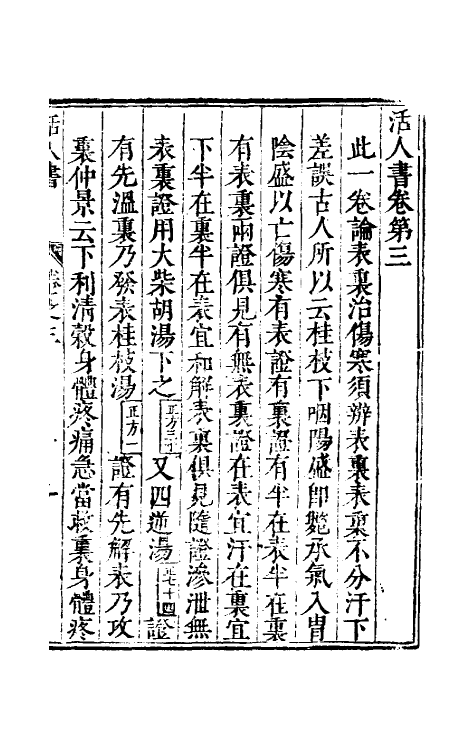 活人書卷第三
此一卷論表裏治傷寒須辨表裏表裏不分汗下
差誤古人所以云桂枝下咽陽盛即斃承氣入胃
陰盛以亡傷寒有表證有裏證有半在表半在裏
有表裏兩證俱見有無表裏證在表宜汗在裏宜
下半在裏半在表宜和解表裏俱見隨證滲泄無
表裏證用大柴胡湯下之正方三十又四逆湯七十四證
有先溫裏乃發表桂枝湯正方一證有先解表乃攻
裏仲景云下利清穀身體疼痛急當救裏身體疼
活人書 卷之三 一